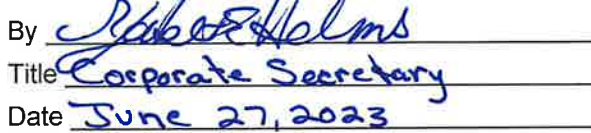 By Robert E Helms
Title Corporate Secretary
Date June 27, 2023